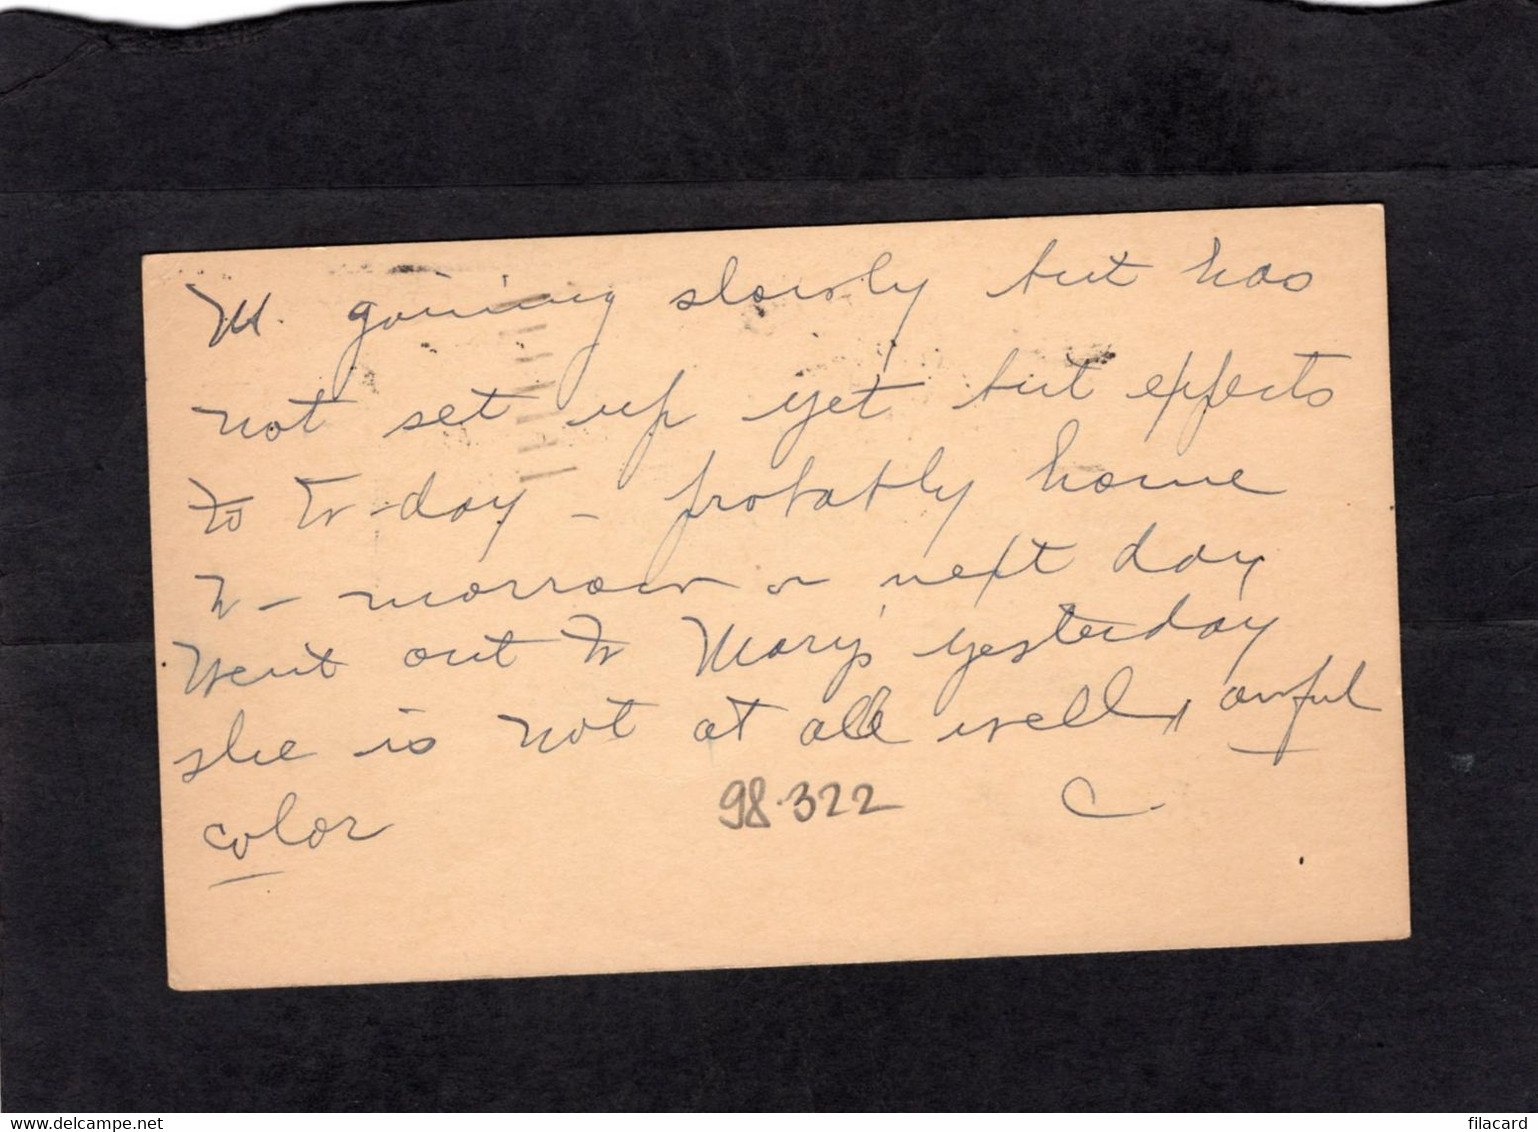 M. gaining slowly but has
not set up yet but expects
to to-day - probably home
to-morrow or next day
Went out to Mary's yesterday
she is not at all well, awful
color
C.
98.322
filacard